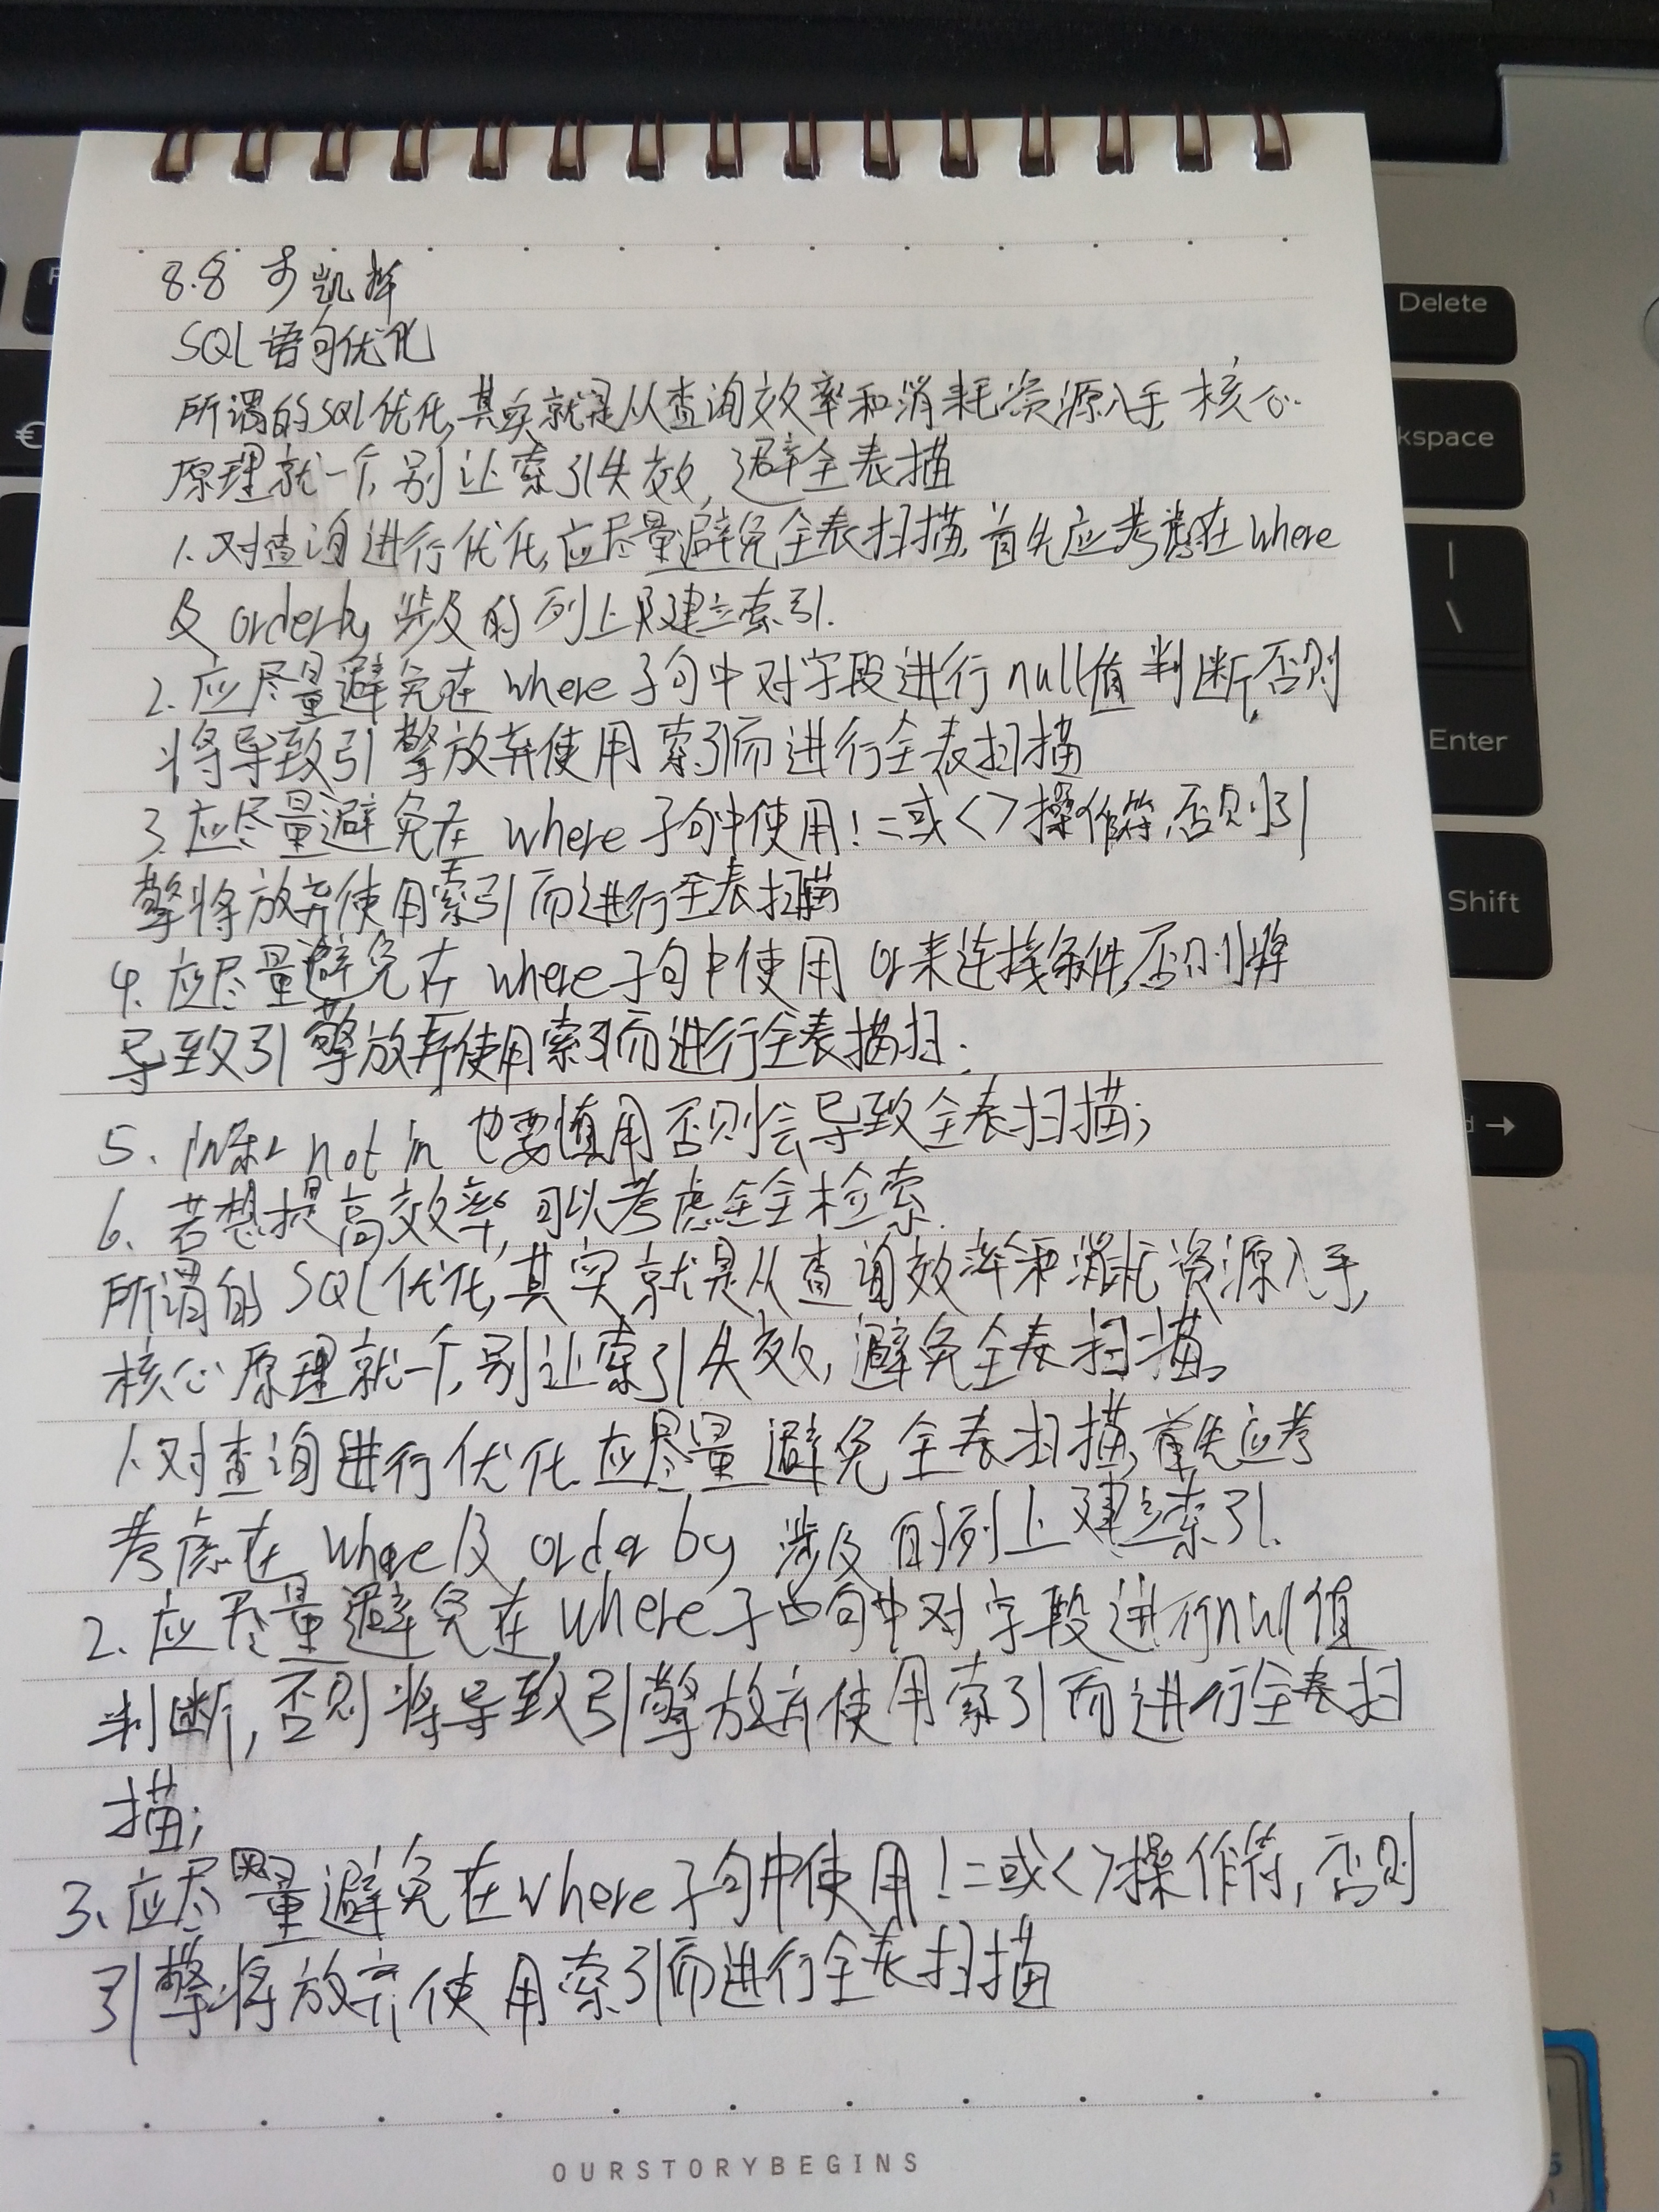 8.8 凯
SQL语句优化
所谓的SQL优化,其实就是从查询效率和消耗资源入手,核心
原理就一个,别让索引失效,避全表描
1.对查询进行优化,应尽量避免全表扫描,首先应考虑在where
及orderby涉及的列上建立索引.
2.应尽量避免在where子句中对字段进行null值判断,否则
将导致引擎放弃使用索引而进行全表扫描
3.应尽量避免在where子句中使用!=或<>操作符,否则引
擎将放弃使用索引而进行全表扫描
4.应尽量避免在where子句中使用or来连接条件,否则将
导致引擎放弃使用索引而进行全表描扫.
5、in和not in也要慎用否则会导致全表扫描;
6、若想提高效率,可以考虑全检索.
所谓的SQL优化,其实就是从查询效率和消耗资源入手,
核心原理就一个,别让索引失效,避免全表扫描。
1.对查询进行优化应尽量避免全表扫描,首先应考
考虑在where及order by涉及的列上建立索引.
2.应尽量避免在where子句中对字段进行null值
判断,否则将导致引擎放弃使用索引而进行全表扫
描;
3、应尽量避免在where子句中使用!=或<>操作符,否则
引擎将放弃使用索引而进行全表扫描
OURSTORYBEGINS
Delete
kspace
|
\
Enter
Shift
d →
€